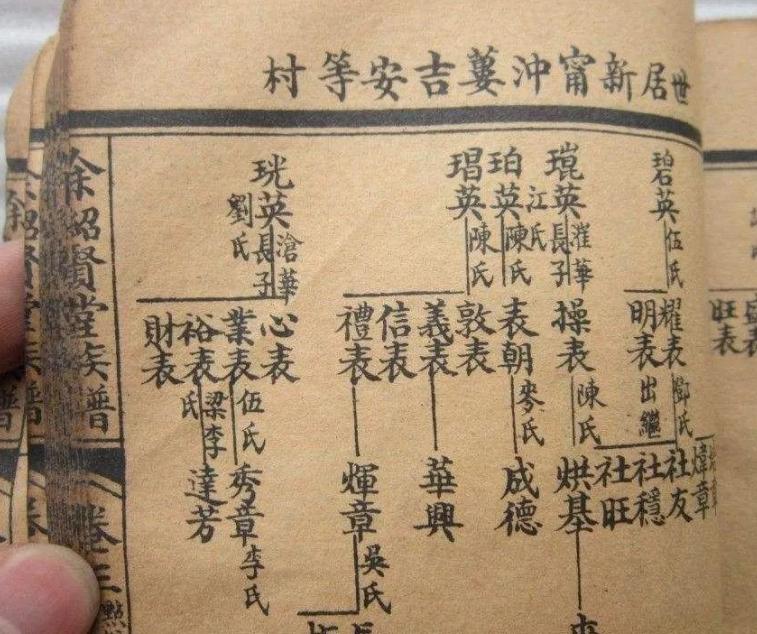 世居新甯沖蔞吉安等村
碧英
伍氏
琨英
江氏
崔華
長子
珀英
陳氏
琩英
陳氏
珖英
劉氏
滄華
長子
旺表
耀表
鄧氏
明表
出繼
操表
陳氏
表朝
麥氏
敦表
義表
信表
禮表
心表
業表
伍氏
裕表
梁李氏
財表
煒章
社友
社穩
社旺
烘基
成德
華興
輝章
吳氏
秀章
李氏
達芳
余紹賢堂族譜
卷三